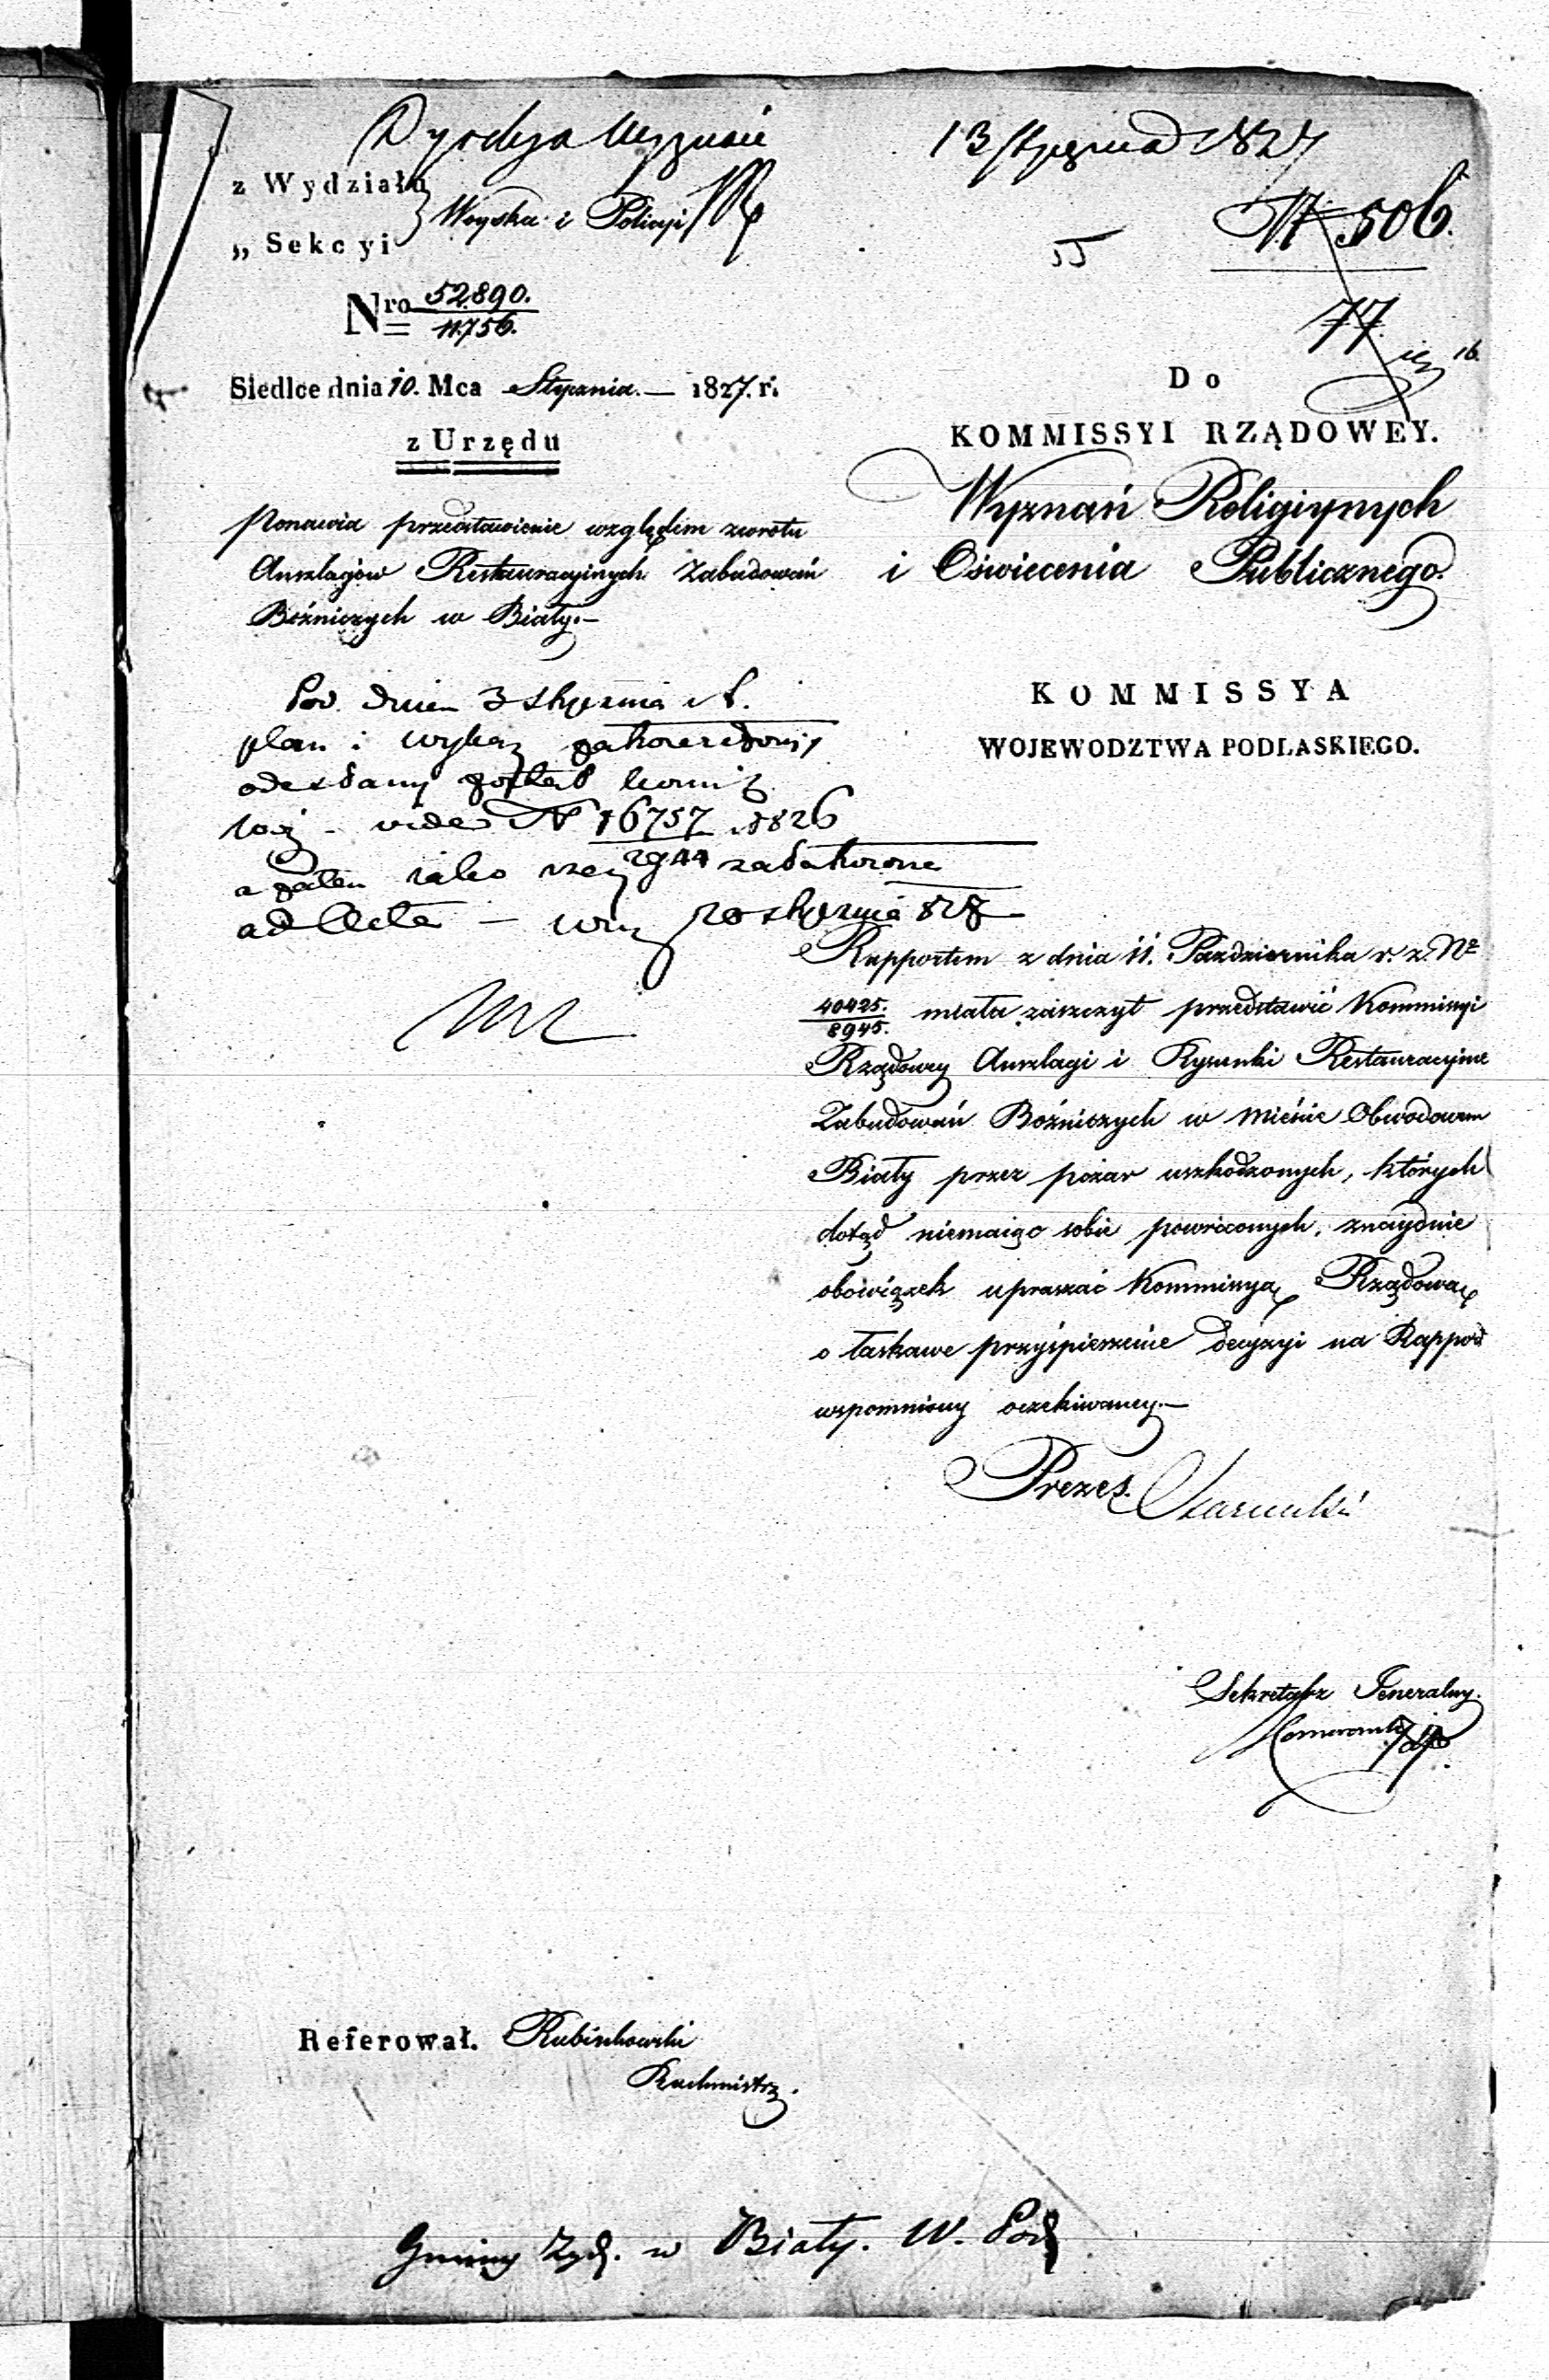 Dyrekcya Wyznań
13 Stycznia 1827
z Wydziału
„ Sekcyi
Woyska i Policyi
N 506.
77.
55
Nro 52890.
11756.
Siedlce dnia 10. Mca Stycznia.— 1827. r.
z Urzędu
Do
KOMMISSYI RZĄDOWEY.
Wyznań Religiynych
i Oświecenia Publicznego.
Ponawia przedstawienie względem zwrotu
Anszlagów Restauracyinych Zabudowań
Bóżniczych w Biały.—
KOMMISSYA
WOJEWODZTWA PODLASKIEGO.
Pod dniem 3 Stycznia
plan i wykaz zatwierdzony
odesłany został
vide N 16757 1826
2944
a zatem iako rzecz załatwiona
ad Acta — 20 stycznia 827
Rapportem z dnia 11. Października r. z. Nro
40425.
8945.
miała zaszczyt przedstawić Kommissyi
Rządowey Anszlagi i Rysunki Restauracyine
Zabudowań Bóżniczych w Mieście Obwodowem
Biały przez pożar uszkodzonych, których
dotąd niemaiąc sobie powróconych, znayduie
obowiązek upraszać Kommissyą Rządową
o łaskawe przyśpieszenie decyzyi na Rapport
wspomniony oczekiwaney.—
Prezes.
Sekretarz Jeneralny.
Referował. Rubinkowski
Rachmistrz.
Gminy Żyd. w Biały. W. Pod